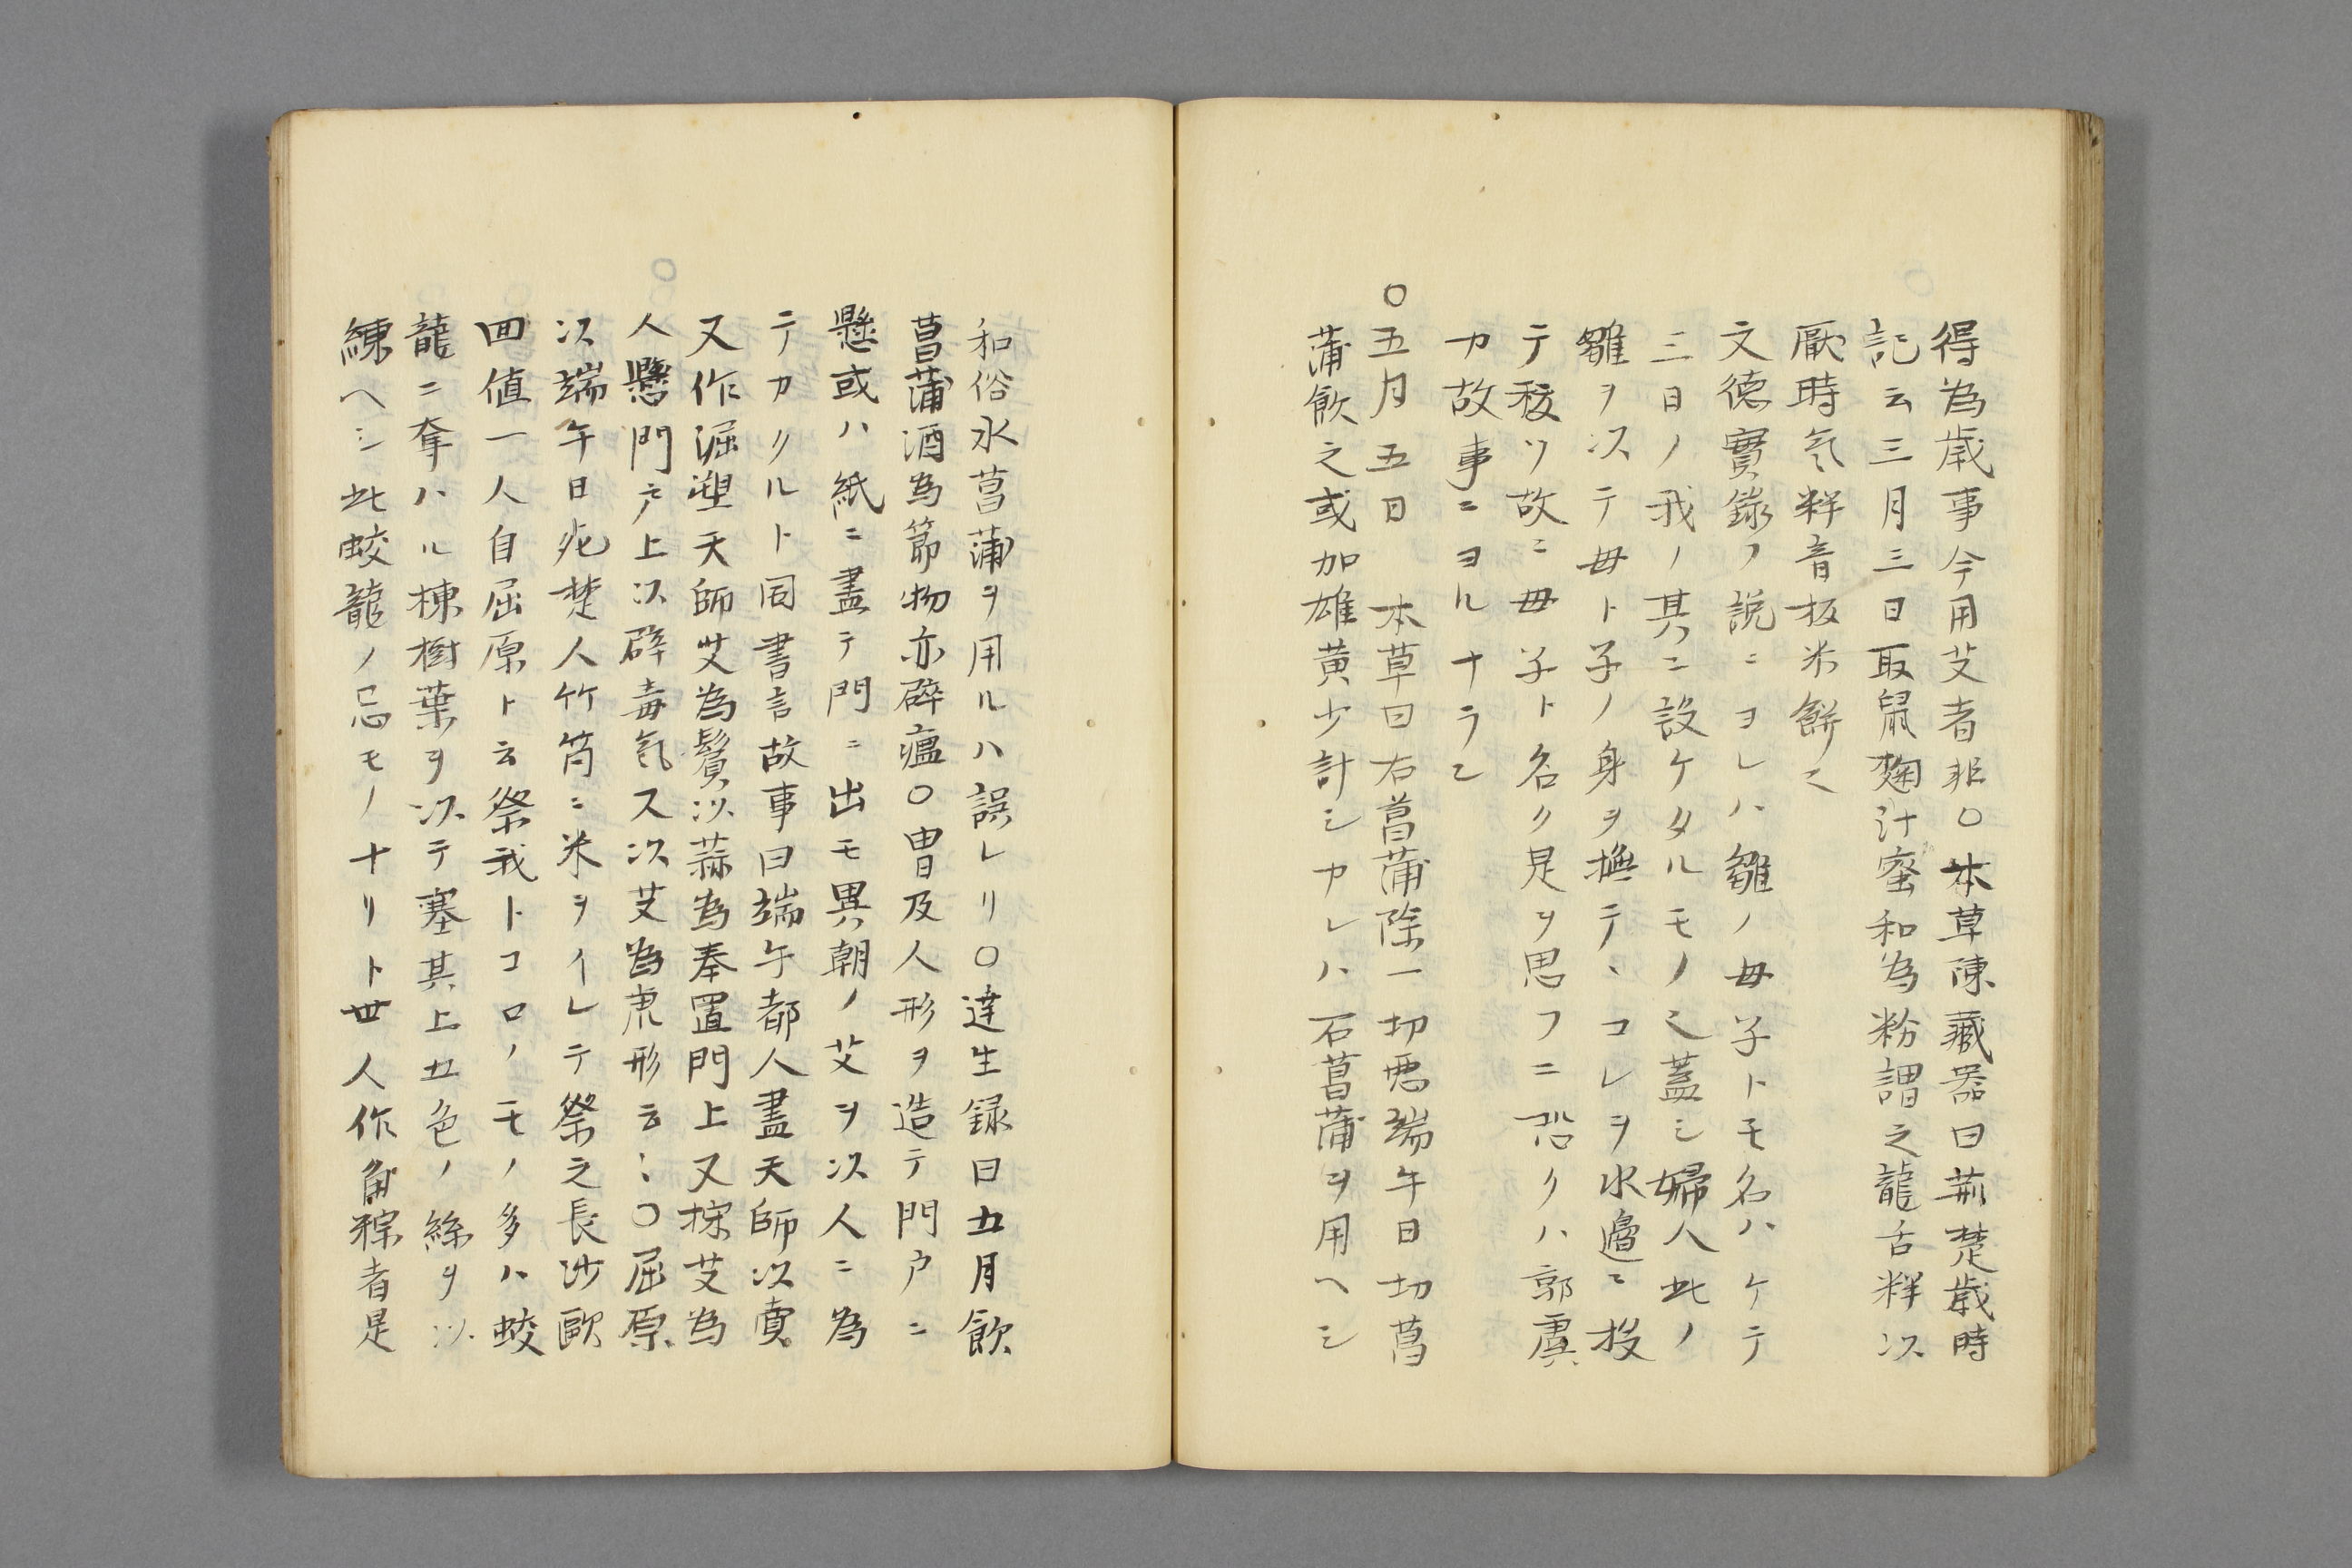 得為歳事今用艾者非〇本草陳藏器曰荊楚歳時
記云三月三日取鼠麹汁蜜和為粉謂之龍舌粄以
厭時気粄音板米餅也
文徳實録ノ説ニヨレハ雛ノ母子トモ名ハケテ
三日ノ我ノ其ニ設ケタルモノ也蓋シ婦人此ノ
雛ヲ以テ母ト子ノ身ヲ撫テ、コレヲ水邉ニ投
テ秡ツ故ニ母子ト名ク是ヲ思フニ恐クハ郭虞
カ故事ニヨルナラン
〇五月五日 本草曰右菖蒲除一切悪端午日切菖
蒲飲之或加雄黄少計シカレハ石菖蒲ヲ用ヘシ
和俗水菖蒲ヲ用ルハ誤レリ〇達生録曰五月飲
菖蒲酒為節物亦辟瘟〇冑及人形ヲ造テ門戸ニ
懸或ハ紙ニ畫テ門ニ出モ異朝ノ艾ヲ以人ニ為
テカクルト同書言故事曰端午都人畫天師以賣
又作泥塑天師艾為鬚以蒜為拳置門上又採艾為
人懸門戸上以辟毒気又以艾為虎形云〻〇屈原
以端午日死楚人竹筒ニ米ヲイレテ祭之長沙歐
回値一人自屈原ト云祭我トコロノモノ多ハ蛟
龍ニ奪ハル楝樹葉ヲ以テ塞其上五色ノ絲ヲ以
練ヘシ此蛟龍ノ忌モノナリト世人作角粽者是